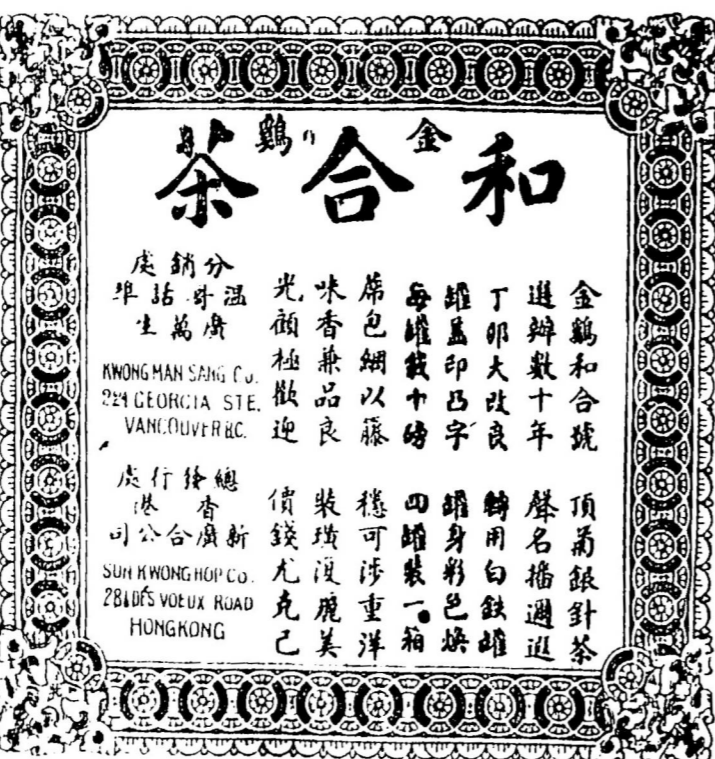 金鷄
和合茶
金鷄和合號 頂銀針茶
選辦數十年 聲名播邇遐
丁卯大改良 轉用白鉄罐
罐蓋印凸字 罐身彩色煥
每罐裝十磅 四罐裝一箱
蓆包綑以籐 穩可涉重洋
味香兼品良 裝璜復瑰美
光顧極歡迎 價錢尤克己
分銷處
温哥埠
廣萬生
KWONG MAN SANG CO.
224 GEORGIA STE.
VANCOUVER B.C.
總發行處
香港
新廣合公司
SUN KWONG HOP CO.
281 DES VOEUX ROAD
HONGKONG